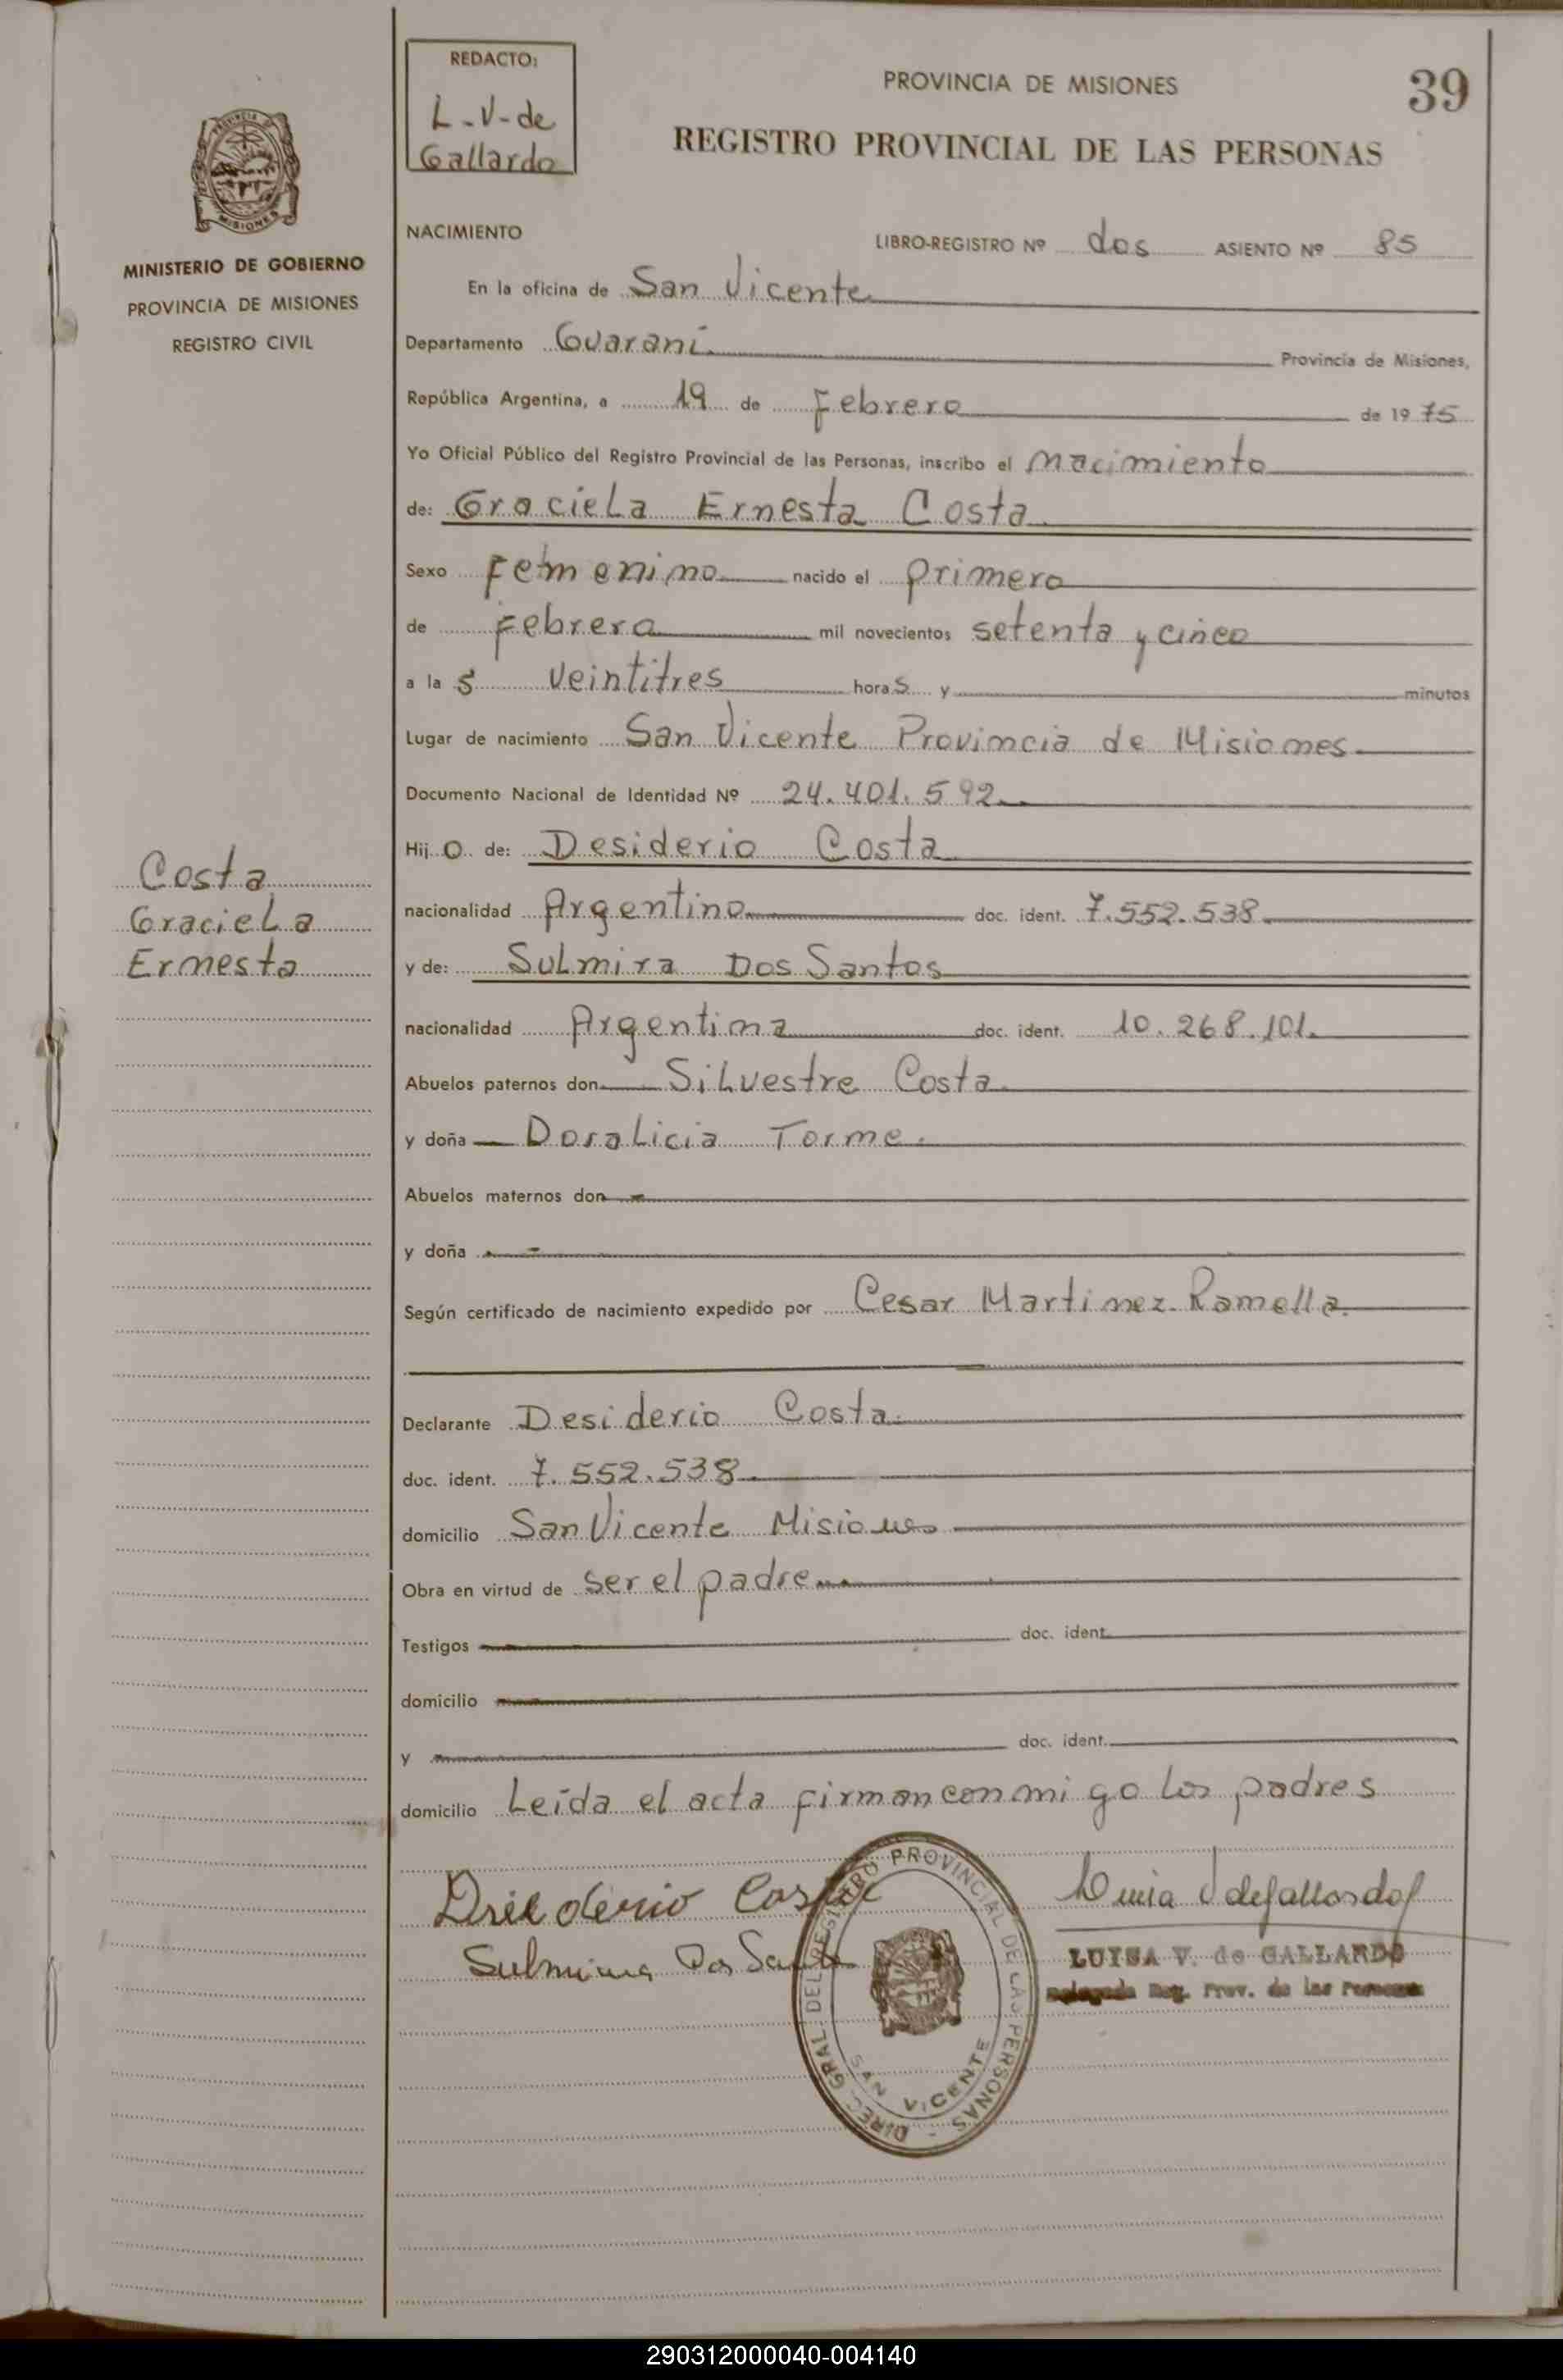 REDACTO:
L-V-de
Gallardo
PROVINCIA DE MISIONES
39
REGISTRO PROVINCIAL DE LAS PERSONAS
PROVINCIA DE
MISIONES
MINISTERIO DE GOBIERNO
PROVINCIA DE MISIONES
REGISTRO CIVIL
NACIMIENTO
LIBRO-REGISTRO Nº dos ASIENTO Nº 85
En la oficina de San Vicente
Departamento Guaraní Provincia de Misiones,
República Argentina, a 19 de Febrero de 1975
Yo Oficial Público del Registro Provincial de las Personas, inscribo el Nacimiento
de: Graciela Ernesta Costa
Sexo Femenino nacido el primero
de Febrero mil novecientos setenta y cinco
a las veintitres horas y minutos
Lugar de nacimiento San Vicente Provincia de Misiones
Documento Nacional de Identidad Nº 24.401.592
Hijo de: Desiderio Costa
nacionalidad Argentino doc. ident. 7.552.538
y de: Sulmira Dos Santos
nacionalidad Argentina doc. ident. 10.268.101
Abuelos paternos don Silvestre Costa
y doña Doralicia Torme.
Abuelos maternos don
y doña
Según certificado de nacimiento expedido por Cesar Martinez Ramella
Declarante Desiderio Costa
doc. ident. 7.552.538
domicilio San Vicente Misiones
Obra en virtud de ser el padre
Testigos doc. ident.
domicilio
y doc. ident.
domicilio Leída el acta firman conmigo los padres
Costa
Graciela
Ernesta
Costa
Dos Santos
DIREC. GRAL. DEL REGISTRO PROVINCIAL DE LAS PERSONAS -
SAN VICENTE
LUISA V. de GALLARDO
Delegada Reg. Prov. de las Personas
290312000040-004140